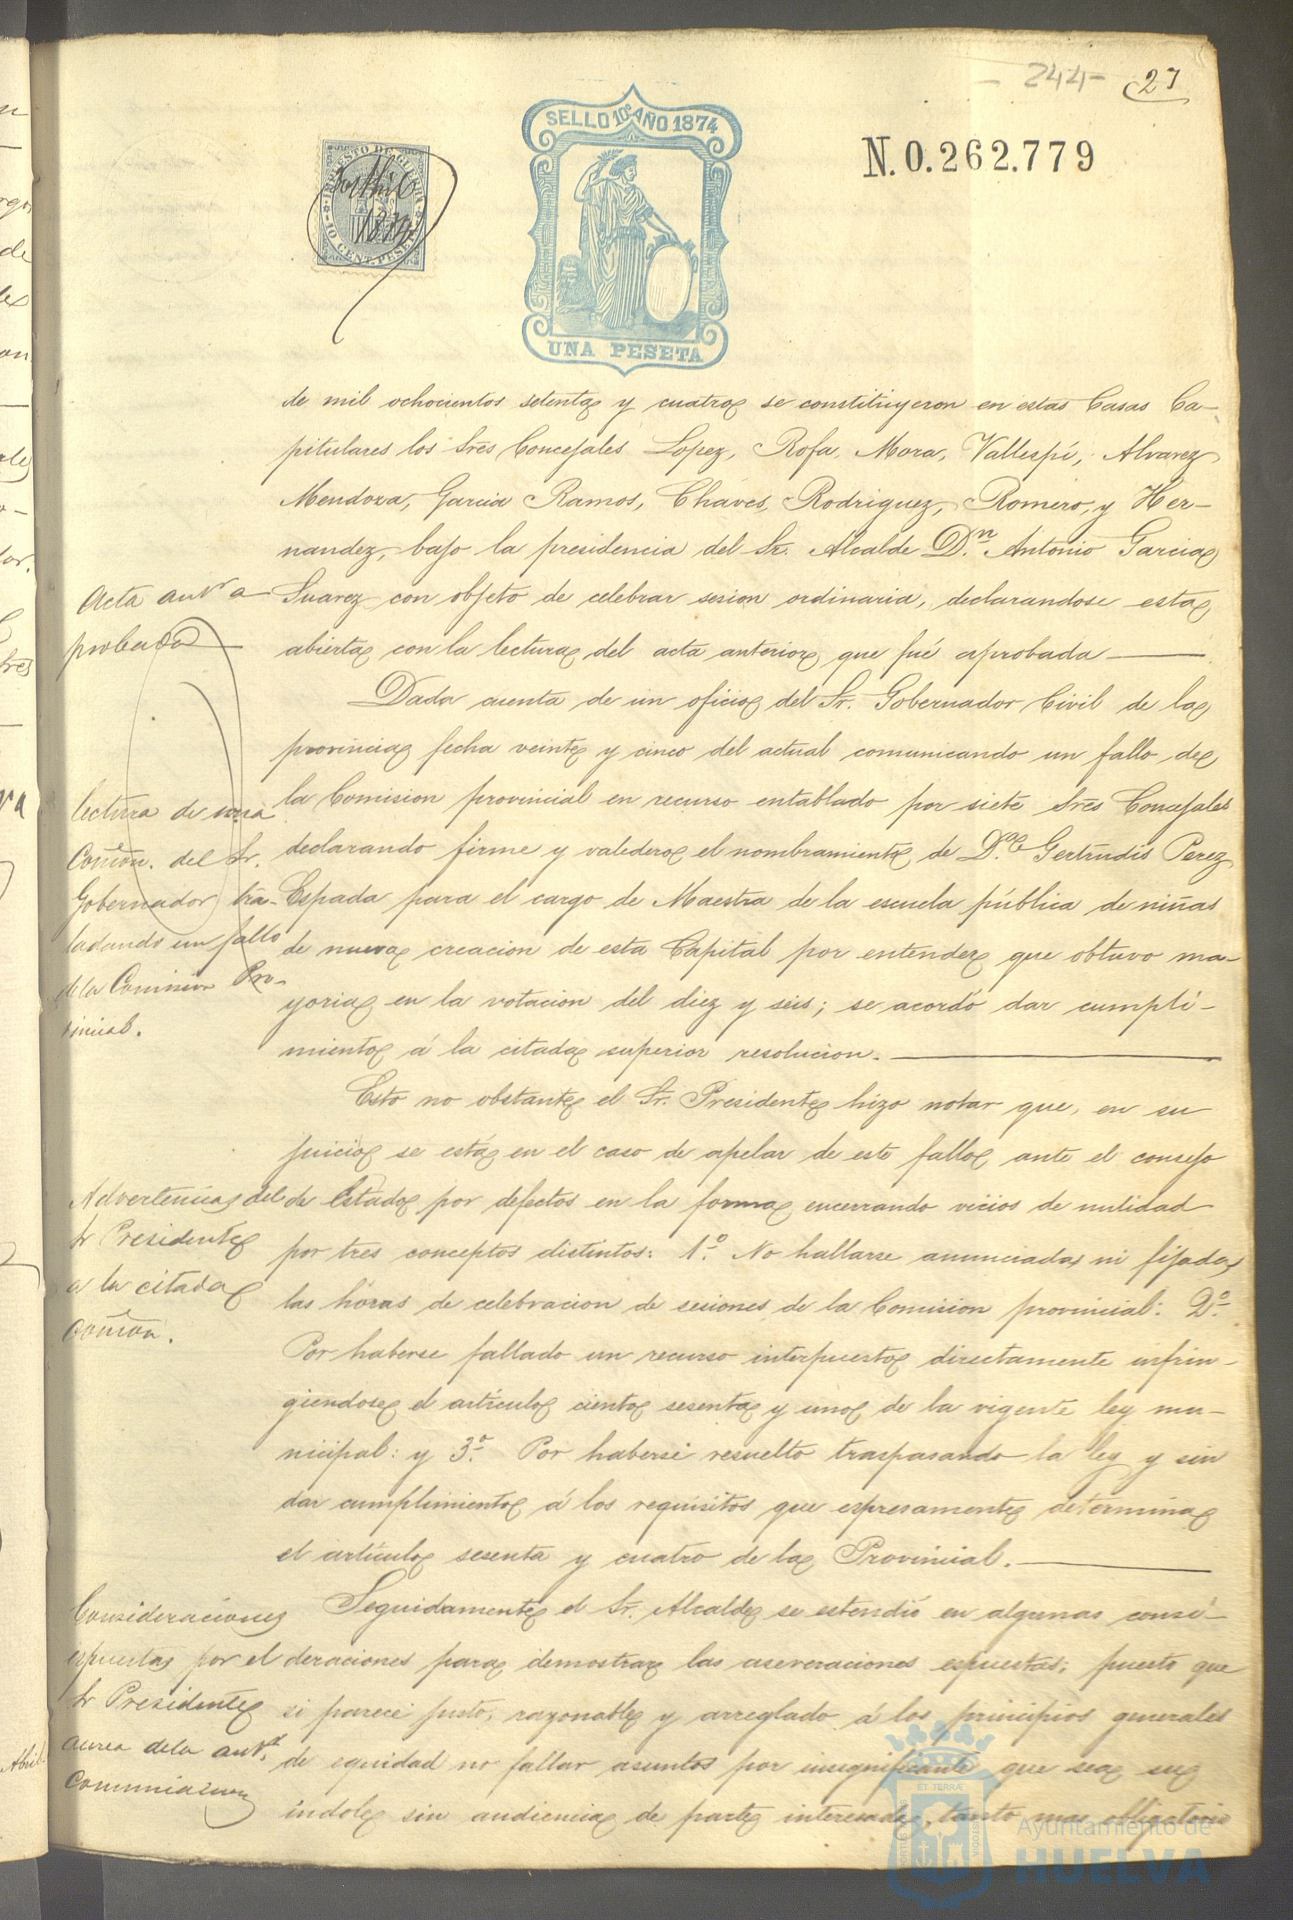 - 244 - 27
SELLO 10º AÑO 1874
N. 0.262.779
IMPUESTO DE GUERRA
1874
10 CENT. PESETA
UNA PESETA
de mil ochocientos setenta y cuatro se constituyeron en estas Casas Ca-
pitulares los Sres Concejales Lopez, Rofa, Mora, Vallespí, Alvarez
Mendoza, Garcia Ramos, Chaves, Rodriguez, Romero, y Her-
nandez, bajo la presidencia del Sr. Alcalde D.n Antonio Garcia
Suarez con objeto de celebrar sesion ordinaria, declarandose esta
abierta con la lectura del acta anterior que fué aprobada
Acta antr a
probada
Dada cuenta de un oficio del Sr. Gobernador Civil de la
provincia fecha veinte y cinco del actual comunicando un fallo de
la Comision provincial en recurso entablado por siete Sres Concejales
declarando firme y valedero el nombramiento de D.ña Gertrudis Perez
Espada para el cargo de Maestra de la escuela pública de niñas
de nueva creacion de esta Capital por entender que obtuvo ma-
yoria en la votacion del diez y seis; se acordó dar cumpli-
miento á la citada superior resolucion.
lectura de una
Comon. del Sr.
Gobernador tra-
ladando un fallo
de la Comision Pro-
vincial.
Esto no obstante el Sr. Presidente hizo notar que, en su
juicio se está en el caso de apelar de este fallo ante el consejo
de Estado por defectos en la forma encerrando vicios de nulidad
por tres conceptos distintos: 1º No hallarse anunciadas ni fijadas
las horas de celebracion de sesiones de la Comision provincial: 2º
Por haberse fallado un recurso interpuesto directamente infrin-
giendose el artículo ciento sesenta y uno de la vigente ley mu-
nicipal: y 3º Por haberse resuelto traspasando la ley y sin
dar cumplimiento á los requisitos que espresamente determina
el artículo sesenta y cuatro de la Provincial.
Advertencias del
Sr Presidente
a la citada
Comon.
Seguidamente el Sr. Alcalde se estendió en algunas consi-
deraciones para demostrar las aseveraciones espuestas; puesto que
si parece justo, razonable y arreglado á los principios generales
de equidad no fallar asuntos por insignificante que sea su
indole sin audiencia de parte interesada, tanto mas obligatorio
Consideraciones
espuestas por el
Sr Presidente
acerca de la antr
Comunicacion
Abril
ET TERRÆ
Ayuntamiento de
HUELVA